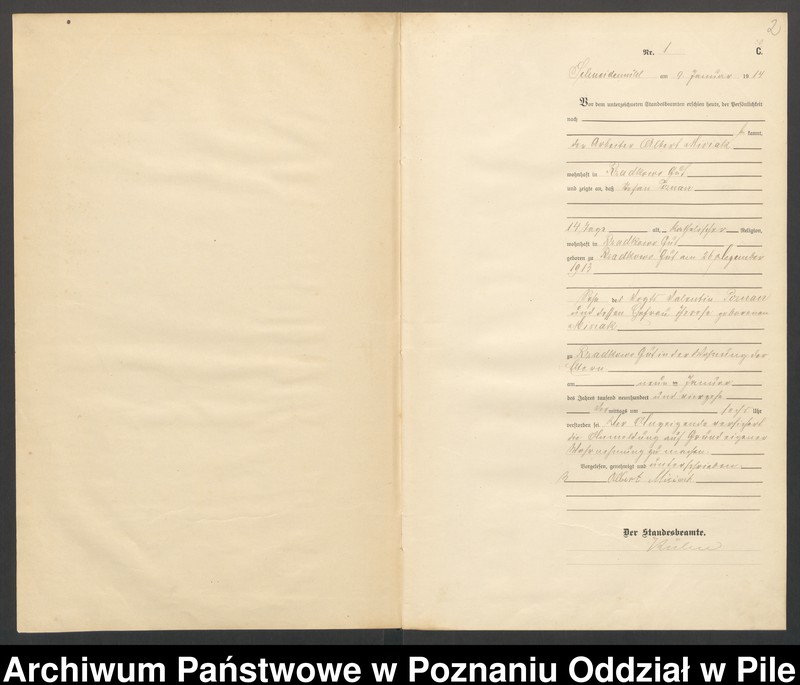 2
Nr. 1
C.
Schneidemühl am 9 Januar 1914
Vor dem unterzeichneten Standesbeamten erschien heute, der Persönlichkeit
nach
kannt,
den Arbeiter Albert
wohnhaft in Radkowo Gut
und zeigte an, daß Stefan
14 Tage alt, katholischer Religion,
wohnhaft in Radkowo Gut
geboren zu Radkowo Gut am 26 Dezember
1913
Sohn des Vogts Valentin
und dessen Ehefrau geborenen
zu Radkowo Gut in der Wohnung der
Eltern
am neun Januar
des Jahres tausend neunhundert und vierzehn
Vormittags um sechs Uhr
verstorben sei. Der Anzeigende versichert
die Anmeldung auf Grund eigener
Wahrnehmung zu machen.
Vorgelesen, genehmigt und unterschrieben
Albert
Der Standesbeamte.
Archiwum Państwowe w Poznaniu Oddział w Pile